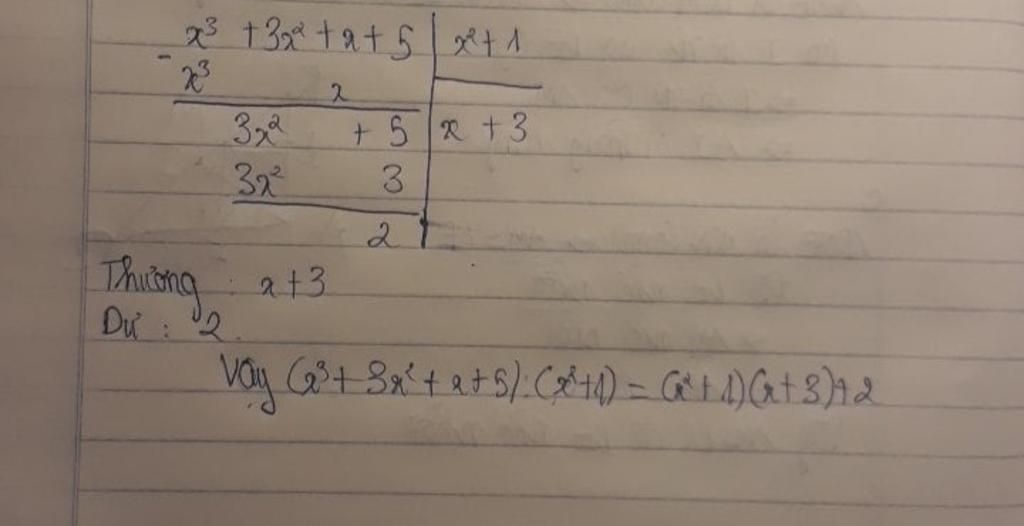 x³ + 3x² + x + 5 | x² + 1
- x³ x
3x² + 5 | x + 3
3x² 3
2
Thương : x + 3
Dư : 2.
Vậy (x³ + 3x² + x + 5) : (x² + 1) = (x² + 1)(x + 3) + 2